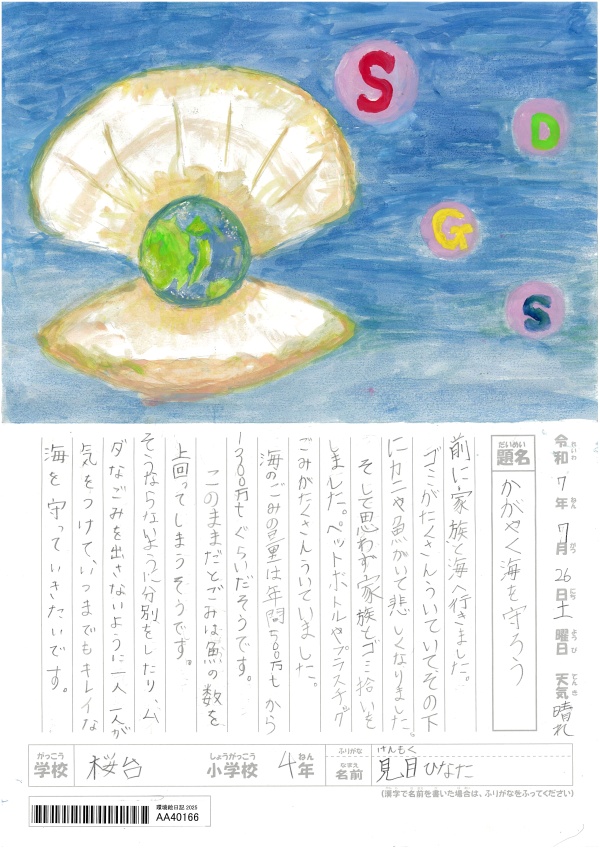 S
D
G
S
令和7年7月26日土曜日 天気晴れ
題名 かがやく海を守ろう
前に家族と海へ行きました。
ゴミがたくさんういていてその下
にカニや魚がいて悲しくなりました。
そして思わず家族とゴミ拾いを
しました。ペットボトルやプラスチック
ごみがたくさんういていました。
海のごみの量は年間500万tから
1300万tぐらいだそうです。
このままだとごみは魚の数を
上回ってしまうそうです。
そうならないように分別をしたり、ム
ダなごみを出さないように一人一人が
気をつけて、いつまでもキレイな
海を守っていきたいです。
がっこう 学校 桜台 しょうがっこう 小学校 4年 ねん
ふりがな けんもく
なまえ 名前 見目ひなた
(漢字で名前を書いた場合は、ふりがなをふってください)
環境絵日記2025
AA40166